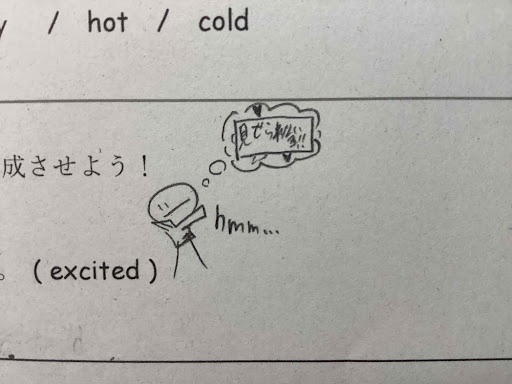 y / hot / cold
見せられないよ!!
成させよう！
hmm...
。(excited)